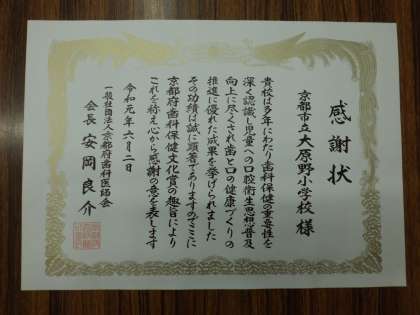 感謝状
京都市立大原野小学校 様
貴校は多年にわたり歯科保健の重要性を
深く認識し児童への口腔衛生思想普及
向上に尽くされ歯と口の健康づくりの
推進に優れた成果を挙げられました
その功績は誠に顕著でありますのでここに
京都府歯科保健文化賞の趣旨により
これを称え心から感謝の意を表します
令和元年六月二日
一般社団法人京都府歯科医師会
会長 安岡良介